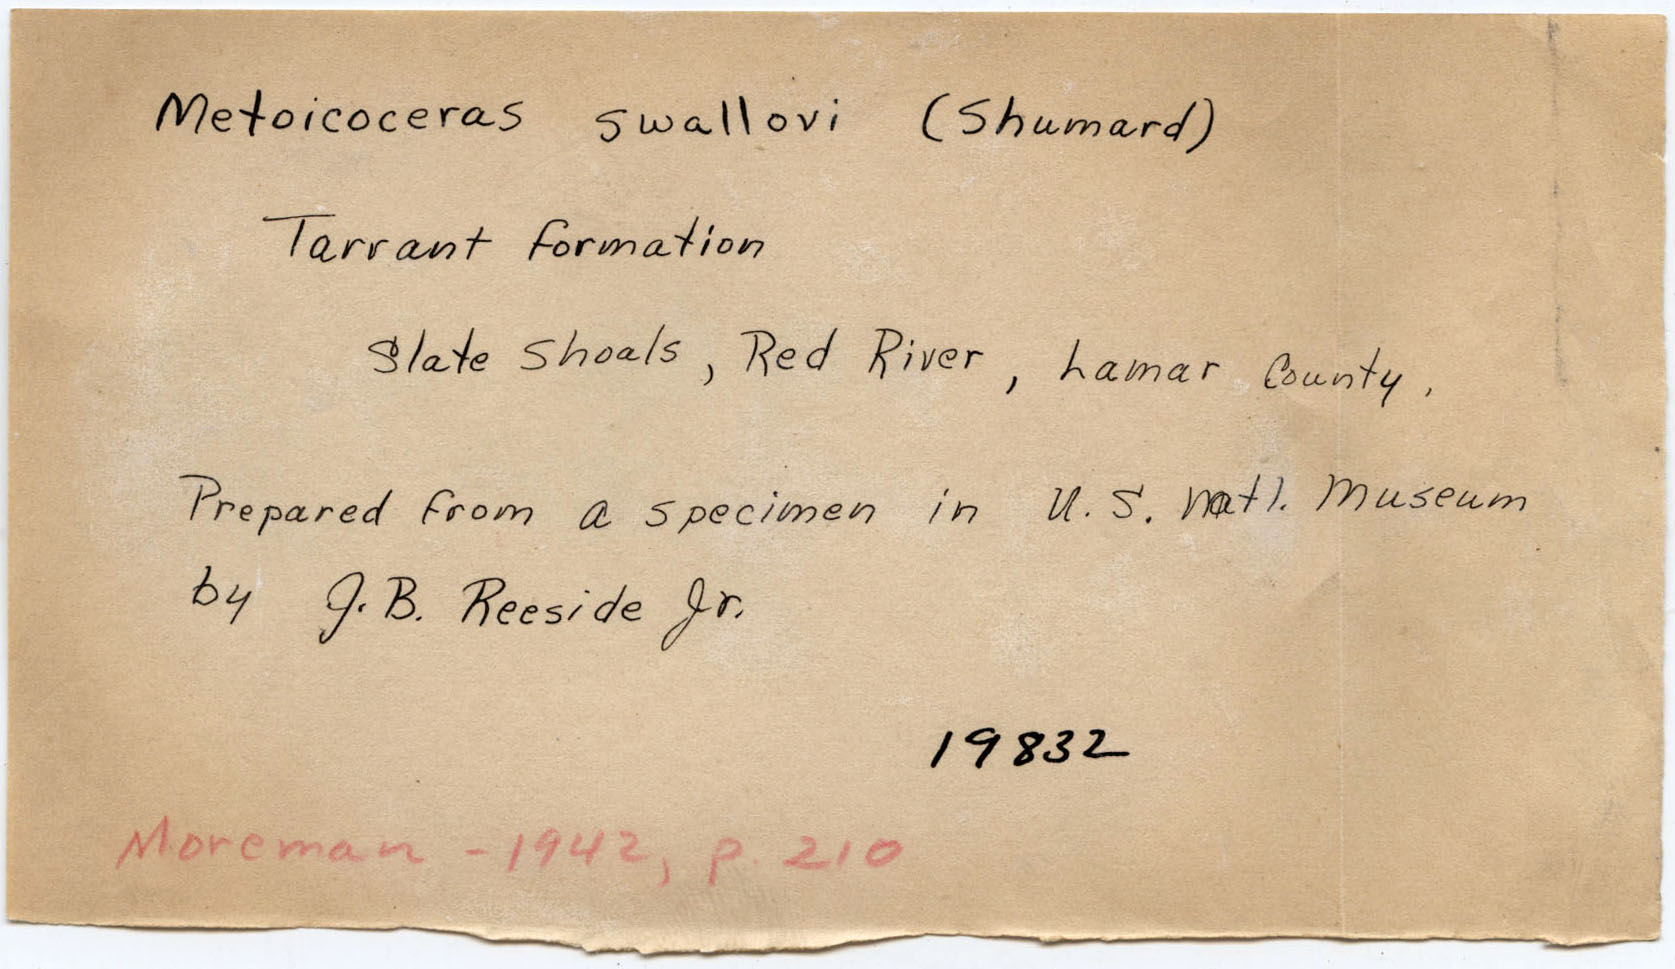 Metoicoceras swallovi (Shumard)
Tarrant formation
Slate Shoals, Red River, Lamar County.
Prepared from a specimen in U.S. Natl. Museum
by J.B. Reeside Jr.
19832
Moreman - 1942, p. 210